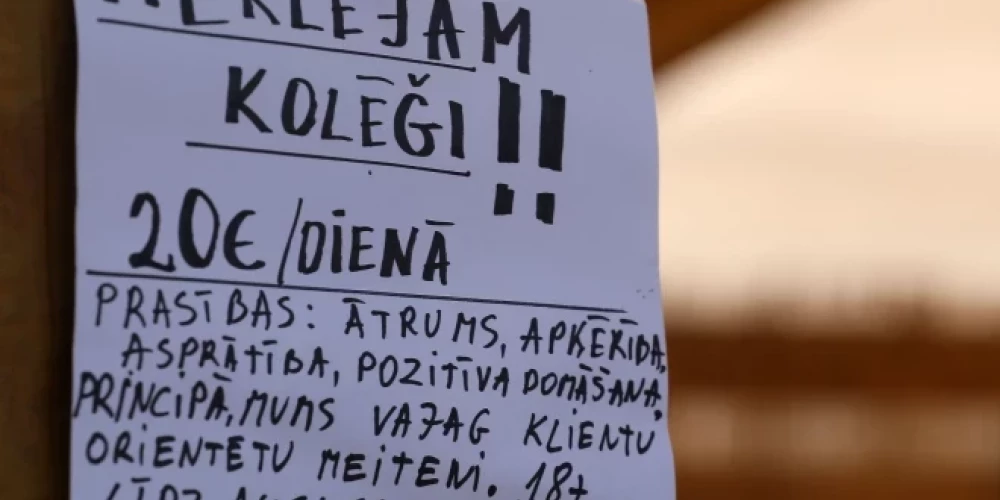 MEKLĒJAM
KOLĒĢI!!
20€/DIENĀ
PRASĪBAS: ĀTRUMS, APĶĒRĪBA,
ASPRĀTĪBA, POZITĪVA DOMĀŠANA,
PRINCIPĀ, MUMS VAJAG KLIENTU
ORIENTĒTU MEITENI. 18+